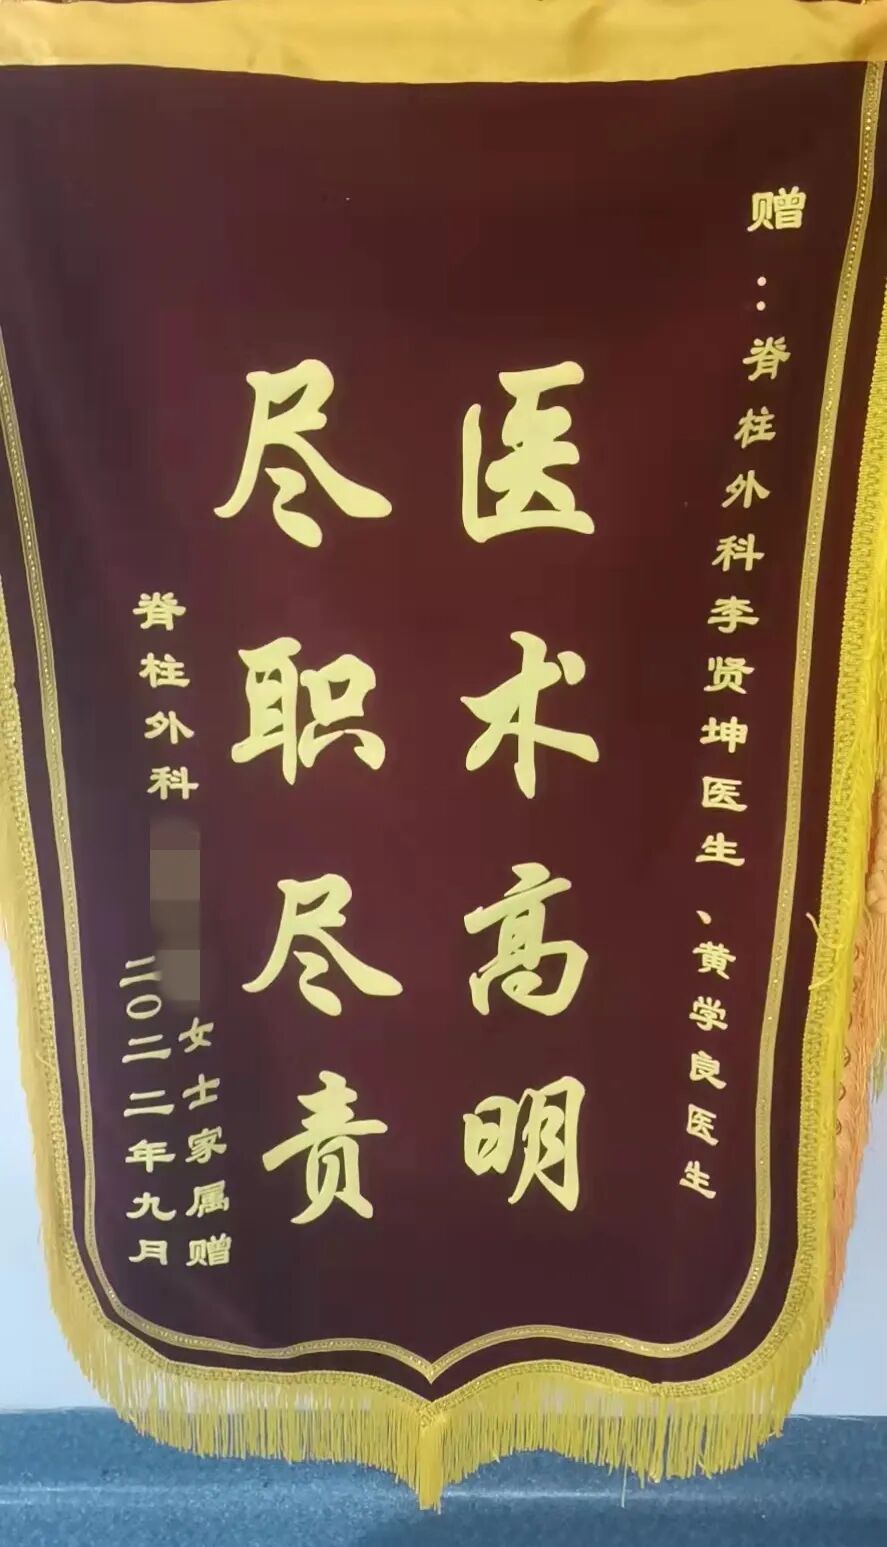 赠:脊柱外科李贤坤医生、黄学良医生
医术高明
尽职尽责
脊柱外科 女士家属赠
二〇二二年九月